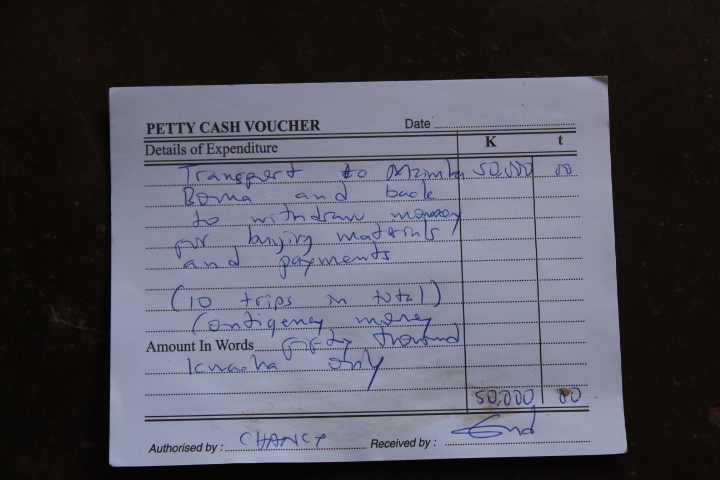 PETTY CASH VOUCHER Date
Details of Expenditure K t
Transport to Mzimba 50,000 00
Boma and back
to withdraw money
for buying materials
and payments
(10 trips in total)
Contigency money
Amount In Words Fifty thousand
kwacha only
50,000 00
Authorised by : CHANCY Received by :